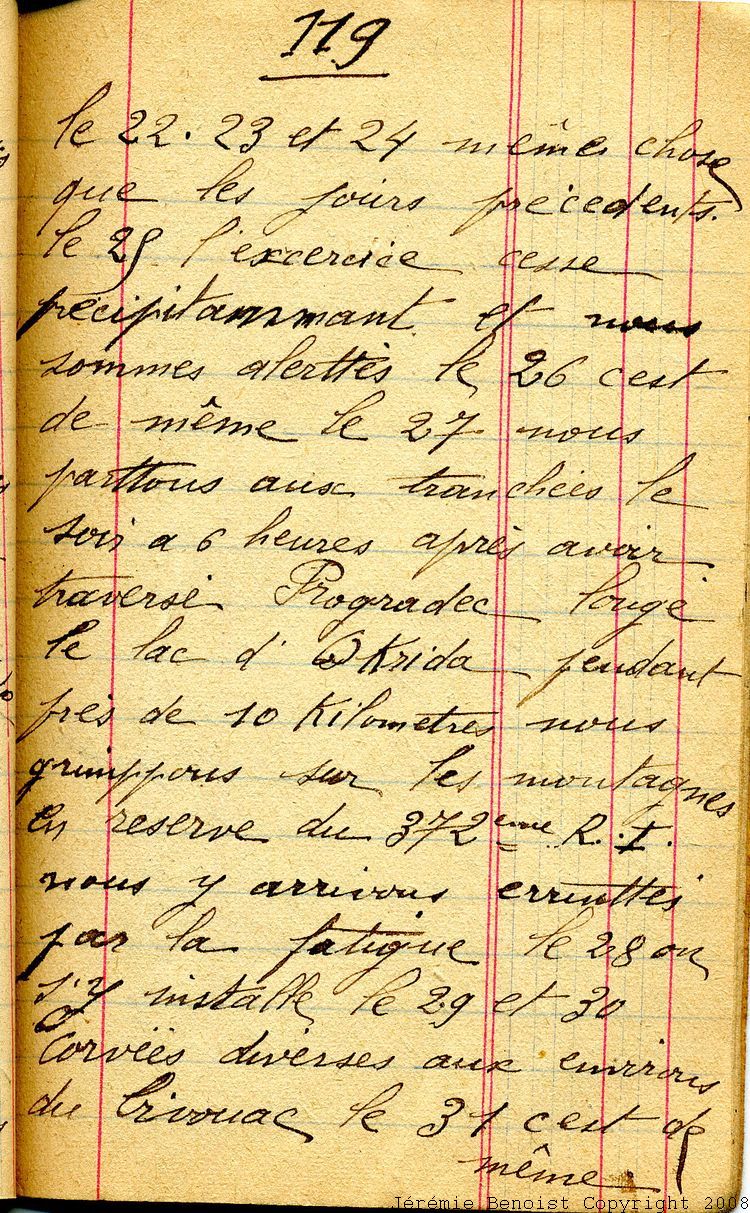 119
le 22. 23 et 24 même chose
que les jours précédents.
le 25 l'excercice cesse
précipitammant et nous
sommes alerttés le 26 cest
de même le 27 nous
parttons aux tranchées le
soir a 6 heures après avoir
traversé Progradec longé
le lac d'Okrida pendant
près de 10 Kilometres nous
grimppons sur les montagnes
en reserve du 372eme R.I.
nous y arrivons ereinttés
par la fatigue le 28 on
s'y installe le 29 et 30
Corvéés diverses aux environs
du bivouac le 31 cest de
même.
Jérémie Benoist Copyright 2008